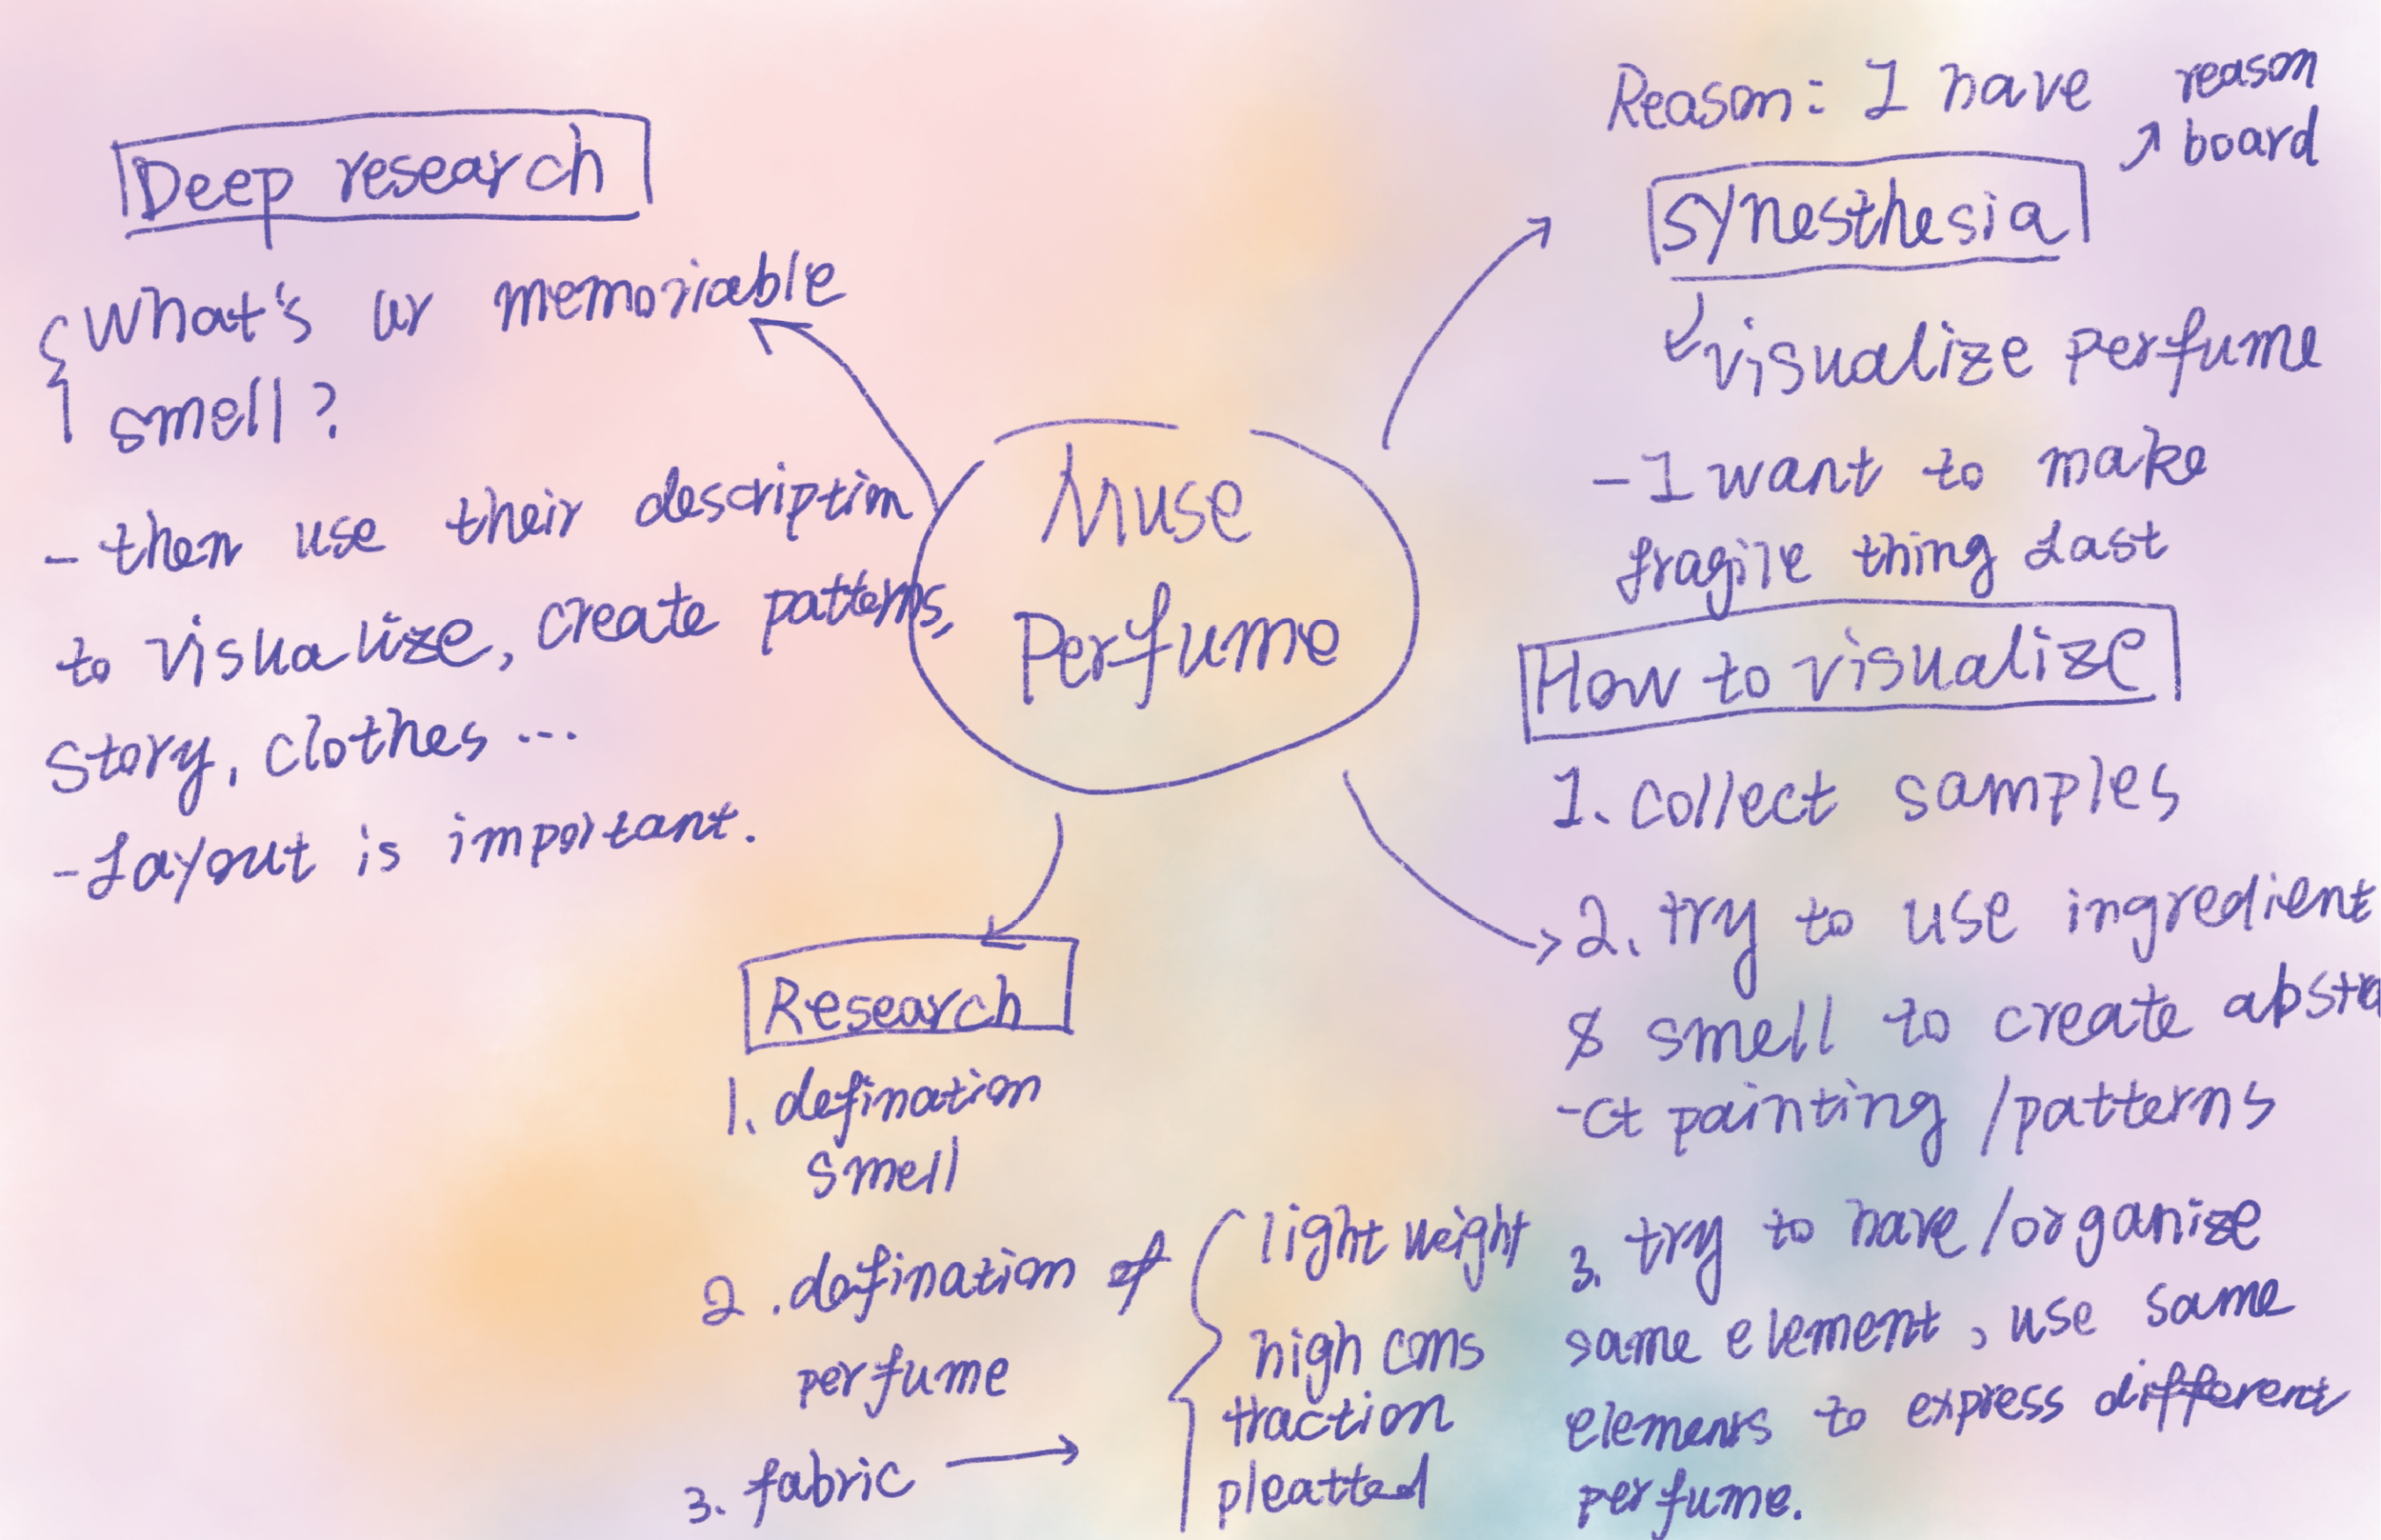 Deep research
What's ur memoriable
smell?
- then use their description
to visualize, create patterns,
story, clothes ...
- Layout is important.
Muse
Perfume
Reason: I have
synesthesia
reason
board
visualize perfume
- I want to make
fragile thing last
How to visualize
1. collect samples
2. try to use ingredient
& smell to create abstra
-ct painting / patterns
3. try to have / organize
same element, use same
elements to express different
perfume.
Research
1. defination
smell
2. defination of
perfume
3. fabric
light weight
high cons
traction
pleatted